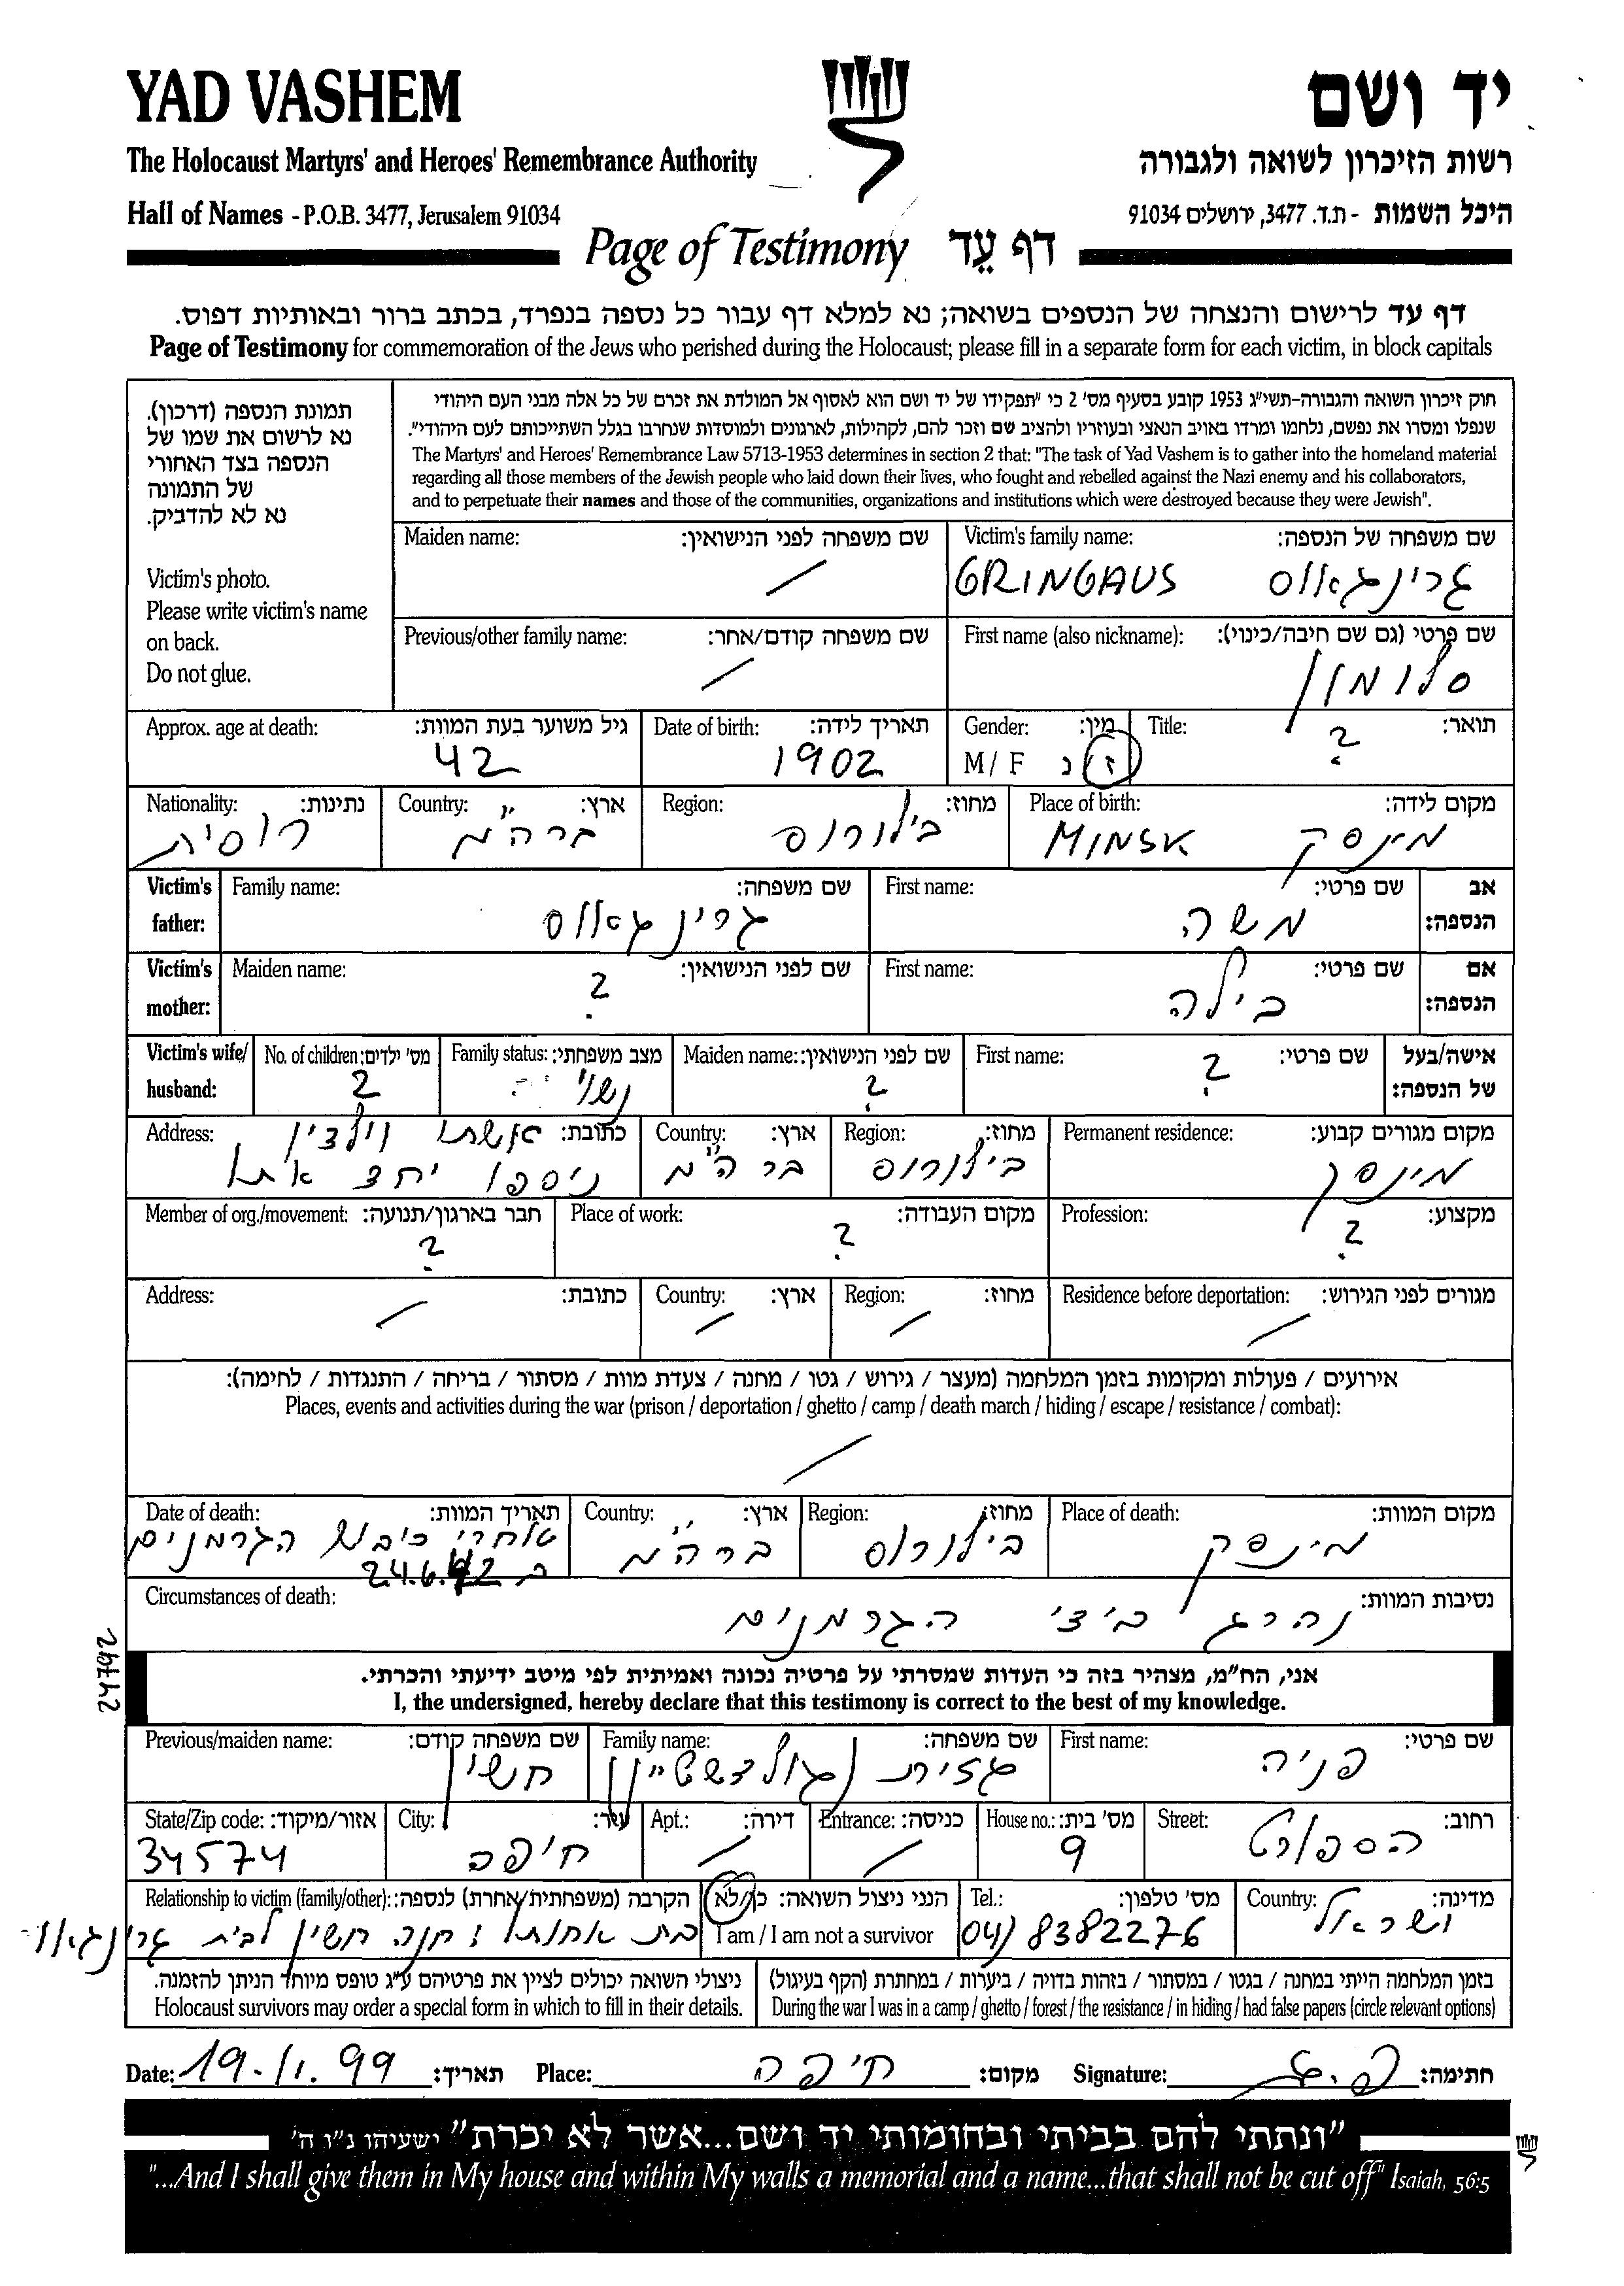 YAD VASHEM
יד ושם
The Holocaust Martyrs' and Heroes' Remembrance Authority
רשות הזיכרון לשואה ולגבורה
Hall of Names - P.O.B. 3477, Jerusalem 91034
היכל השמות - ת.ד. 3477, ירושלים 91034
Page of Testimony דף עֵד
דף עד לרישום והנצחה של הנספים בשואה; נא למלא דף עבור כל נספה בנפרד, בכתב ברור ובאותיות דפוס.
Page of Testimony for commemoration of the Jews who perished during the Holocaust; please fill in a separate form for each victim, in block capitals
תמונת הנספה (דרכון).
נא לרשום את שמו של
הנספה בצד האחורי
של התמונה
נא לא להדביק.
Victim's photo.
Please write victim's name
on back.
Do not glue.
חוק זיכרון השואה והגבורה-תשי"ג 1953 קובע בסעיף מס' 2 כי "תפקידו של יד ושם הוא לאסוף אל המולדת את זכרם של כל אלה מבני העם היהודי
שנפלו ומסרו את נפשם, נלחמו ומרדו באויב הנאצי ובעוזריו ולהציב שם וזכר להם, לקהילות, לארגונים ולמוסדות שנחרבו בגלל השתייכותם לעם היהודי".
The Martyrs' and Heroes' Remembrance Law 5713-1953 determines in section 2 that: "The task of Yad Vashem is to gather into the homeland material
regarding all those members of the Jewish people who laid down their lives, who fought and rebelled against the Nazi enemy and his collaborators,
and to perpetuate their names and those of the communities, organizations and institutions which were destroyed because they were Jewish".
Victim's family name: שם משפחה של הנספה:
GRINGAUS גרינגאוס
Maiden name: שם משפחה לפני הנישואין:
/
First name (also nickname): שם פרטי (גם שם חיבה/כינוי):
סלומון
Previous/other family name: שם משפחה קודם/אחר:
/
Title: תואר:
?
Gender: מין:
M/ F ז/נ
Date of birth: תאריך לידה:
1902
Approx. age at death: גיל משוער בעת המוות:
42
Place of birth: מקום לידה:
MINSK מינסק
Region: מחוז:
בילורוס
Country: ארץ:
ברה"מ
Nationality: נתינות:
רוסית
Victim's father: אב הנספה:
First name: שם פרטי:
משה
Family name: שם משפחה:
גרינגאוס
Victim's mother: אם הנספה:
First name: שם פרטי:
בילה
Maiden name: שם לפני הנישואין:
?
Victim's wife/ husband: אישה/בעל של הנספה:
First name: שם פרטי:
?
Maiden name: שם לפני הנישואין:
?
Family status: מצב משפחתי:
נשוי
No. of children: מס' ילדים:
2
Permanent residence: מקום מגורים קבוע:
מינסק
Region: מחוז:
בילורוס
Country: ארץ:
ברה"מ
Address: כתובת:
אשתו וילדיו
ניספו יחד אתו
Profession: מקצוע:
?
Place of work: מקום העבודה:
?
Member of org./movement: חבר בארגון/תנועה:
?
Residence before deportation: מגורים לפני הגירוש:
/
Region: מחוז:
/
Country: ארץ:
/
Address: כתובת:
/
אירועים / פעולות ומקומות בזמן המלחמה (מעצר / גירוש / גטו / מחנה / צעדת מוות / מסתור / בריחה / התנגדות / לחימה):
Places, events and activities during the war (prison / deportation / ghetto / camp / death march / hiding / escape / resistance / combat):
/
Place of death: מקום המוות:
מינסק
Region: מחוז:
בילורוס
Country: ארץ:
ברה"מ
Date of death: תאריך המוות:
אחרי כיבוש הגרמנים
ב 24.6.42
Circumstances of death: נסיבות המוות:
נהרג ב'צ' הגרמנים
24792
אני, הח"מ, מצהיר בזה כי העדות שמסרתי על פרטיה נכונה ואמיתית לפי מיטב ידיעתי והכרתי.
I, the undersigned, hereby declare that this testimony is correct to the best of my knowledge.
First name: שם פרטי:
פניה
Family name: שם משפחה:
גזית גולדשטיין
Previous/maiden name: שם משפחה קודם:
חנשין
Street: רחוב:
הספורט
House no.: מס' בית:
9
Entrance: כניסה:
/
Apt.: דירה:
/
City: עיר:
חיפה
State/Zip code: אזור/מיקוד:
34574
Country: מדינה:
ישראל
Tel.: מס' טלפון:
04) 8382276
הנני ניצול השואה: כן/לא
I am / I am not a survivor
Relationship to victim (family/other): הקרבה (משפחתית/אחרת) לנספה:
בת אחותו : חנה חנשין לבית גרינגאוס
בזמן המלחמה הייתי במחנה / בגטו / במסתור / בזהות בדויה / ביערות / במחתרת (הקף בעיגול)
During the war I was in a camp / ghetto / forest / the resistance / in hiding / had false papers (circle relevant options)
ניצולי השואה יכולים לציין את פרטיהם ע"ג טופס מיוחד הניתן להזמנה.
Holocaust survivors may order a special form in which to fill in their details.
Date: 19.11.99 תאריך: Place: חיפה מקום: Signature: פ.ג חתימה:
"ונתתי להם בביתי ובחומותי יד ושם...אשר לא יכרת" ישעיהו נ"ו ה'
"...And I shall give them in My house and within My walls a memorial and a name...that shall not be cut off" Isaiah, 56:5